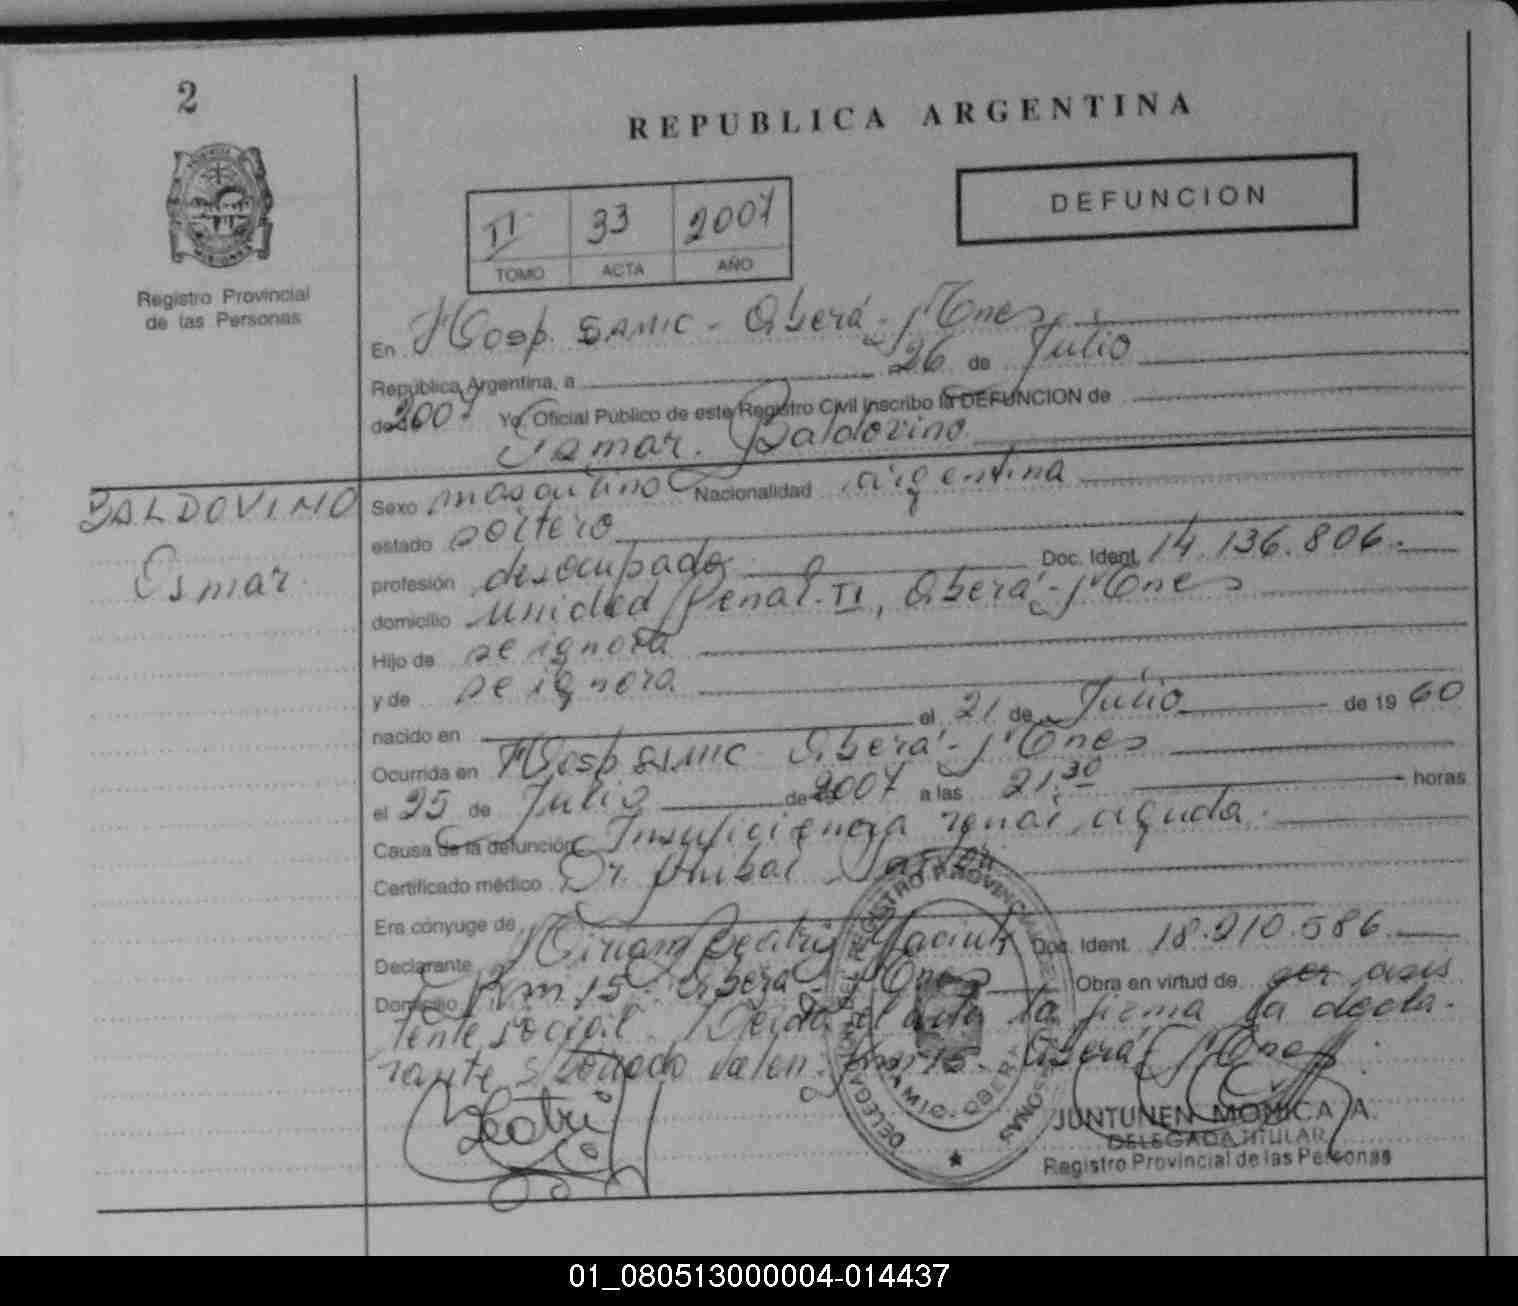 2
REPUBLICA ARGENTINA
DEFUNCION
II 33 2007
TOMO ACTA AÑO
Registro Provincial
de las Personas
En Hosp. SAMIC - Oberá - Mnes.
República Argentina, a 26 de Julio
de 2007 Yo, Oficial Público de este Registro Civil inscribo la DEFUNCION de
Osmar Baldovino
BALDOVINO
Osmar
Sexo masculino Nacionalidad argentina
estado soltero
profesión desocupado Doc. Ident. 14.136.806.
domicilio Unidad Penal II, Oberá - Mnes
Hijo de se ignora
y de se ignora
nacido en el 21 de Julio de 1960
Ocurrida en Hosp SAMIC - Oberá - Mnes
el 25 de Julio de 2007 a las 21.30 horas
Causa de la defunción Insuficiencia renal aguda.
Certificado médico Dr. Anibal
Era cónyuge de
Declarante Miriam Beatriz Doc. Ident. 18.210.586.
Domicilio Km 15 - Oberá - Mnes Obra en virtud de ser asis
tente social. Leida el acta la firma la decla-
rante s/borrado valen. Km 15. Oberá Mnes
DELEGACION DEL REGISTRO PROVINCIAL DE LAS PERSONAS
SAMIC - OBERA
JUNTUNEN MONICA A.
DELEGADA TITULAR
Registro Provincial de las Personas
01_080513000004-014437